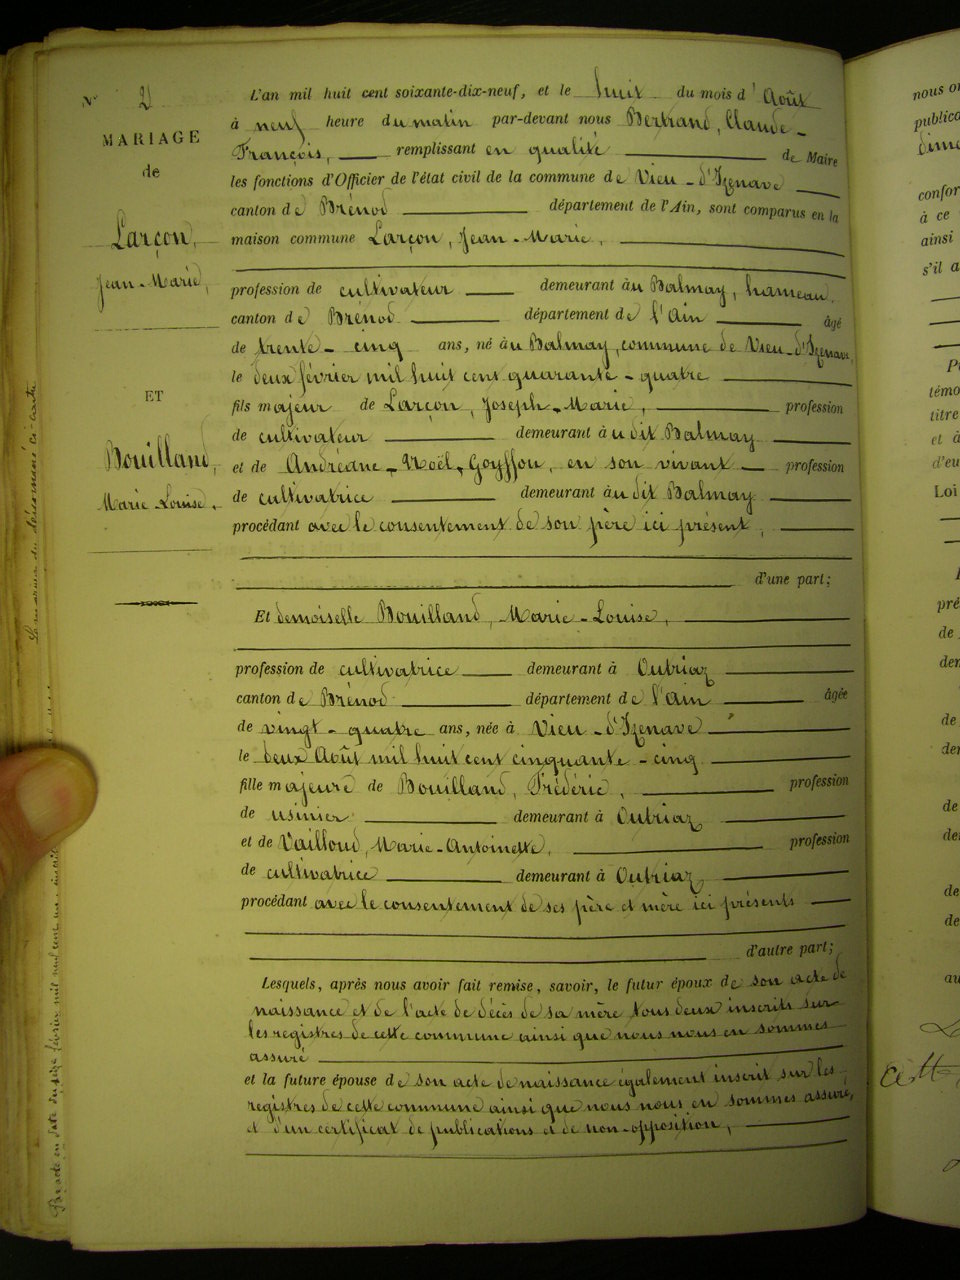 N° 21
MARIAGE
de
Larçon,
Jean-Marie,
ET
Bouilland,
Marie Louise,
L'an mil huit cent soixante-dix-neuf, et le huit du mois d'Août
à neuf heure du matin par-devant nous Bertrand, Claude-
François, remplissant en qualité de Maire
les fonctions d'Officier de l'état civil de la commune de Vieu-d'Izenave
canton de Brénod département de l'Ain, sont comparus en la
maison commune Larçon, Jean-Marie,
profession de cultivateur demeurant au Balmay, hameau,
canton de Brénod département de l'Ain âgé
de trente-cinq ans, né au Balmay, commune de Vieu-d'Izenave
le deux février mil huit cent quarante-quatre
fils majeur de Larçon, Joseph-Marie, profession
de cultivateur demeurant à u dit Balmay
et de Andréane-Noël, Goyffon, en son vivant profession
de cultivatrice demeurant au dit Balmay
procédant avec le consentement de son père ici présent,
d'une part;
Et demoiselle Bouilland, Marie-Louise,
profession de cultivatrice demeurant à Outriaz
canton de Brénod département de l'Ain âgée
de vingt-quatre ans, née à Vieu-d'Izenave
le deux Août mil huit cent cinquante-cinq
fille majeure de Bouilland, Frédéric, profession
de usinier demeurant à Outriaz
et de Vailloud, Marie-Antoinette, profession
de cultivatrice demeurant à Outriaz
procédant avec le consentement de ses père et mère ici présents
d'autre part;
Lesquels, après nous avoir fait remise, savoir, le futur époux de son acte de
naissance et de l'acte de décès de sa mère tous deux inscrits sur
les registres de cette commune ainsi que nous nous en sommes
assuré
et la future épouse de son acte de naissance également inscrit sur les
registres de cette commune ainsi que nous nous en sommes assuré,
et d'un certificat de publications et de non-opposition,